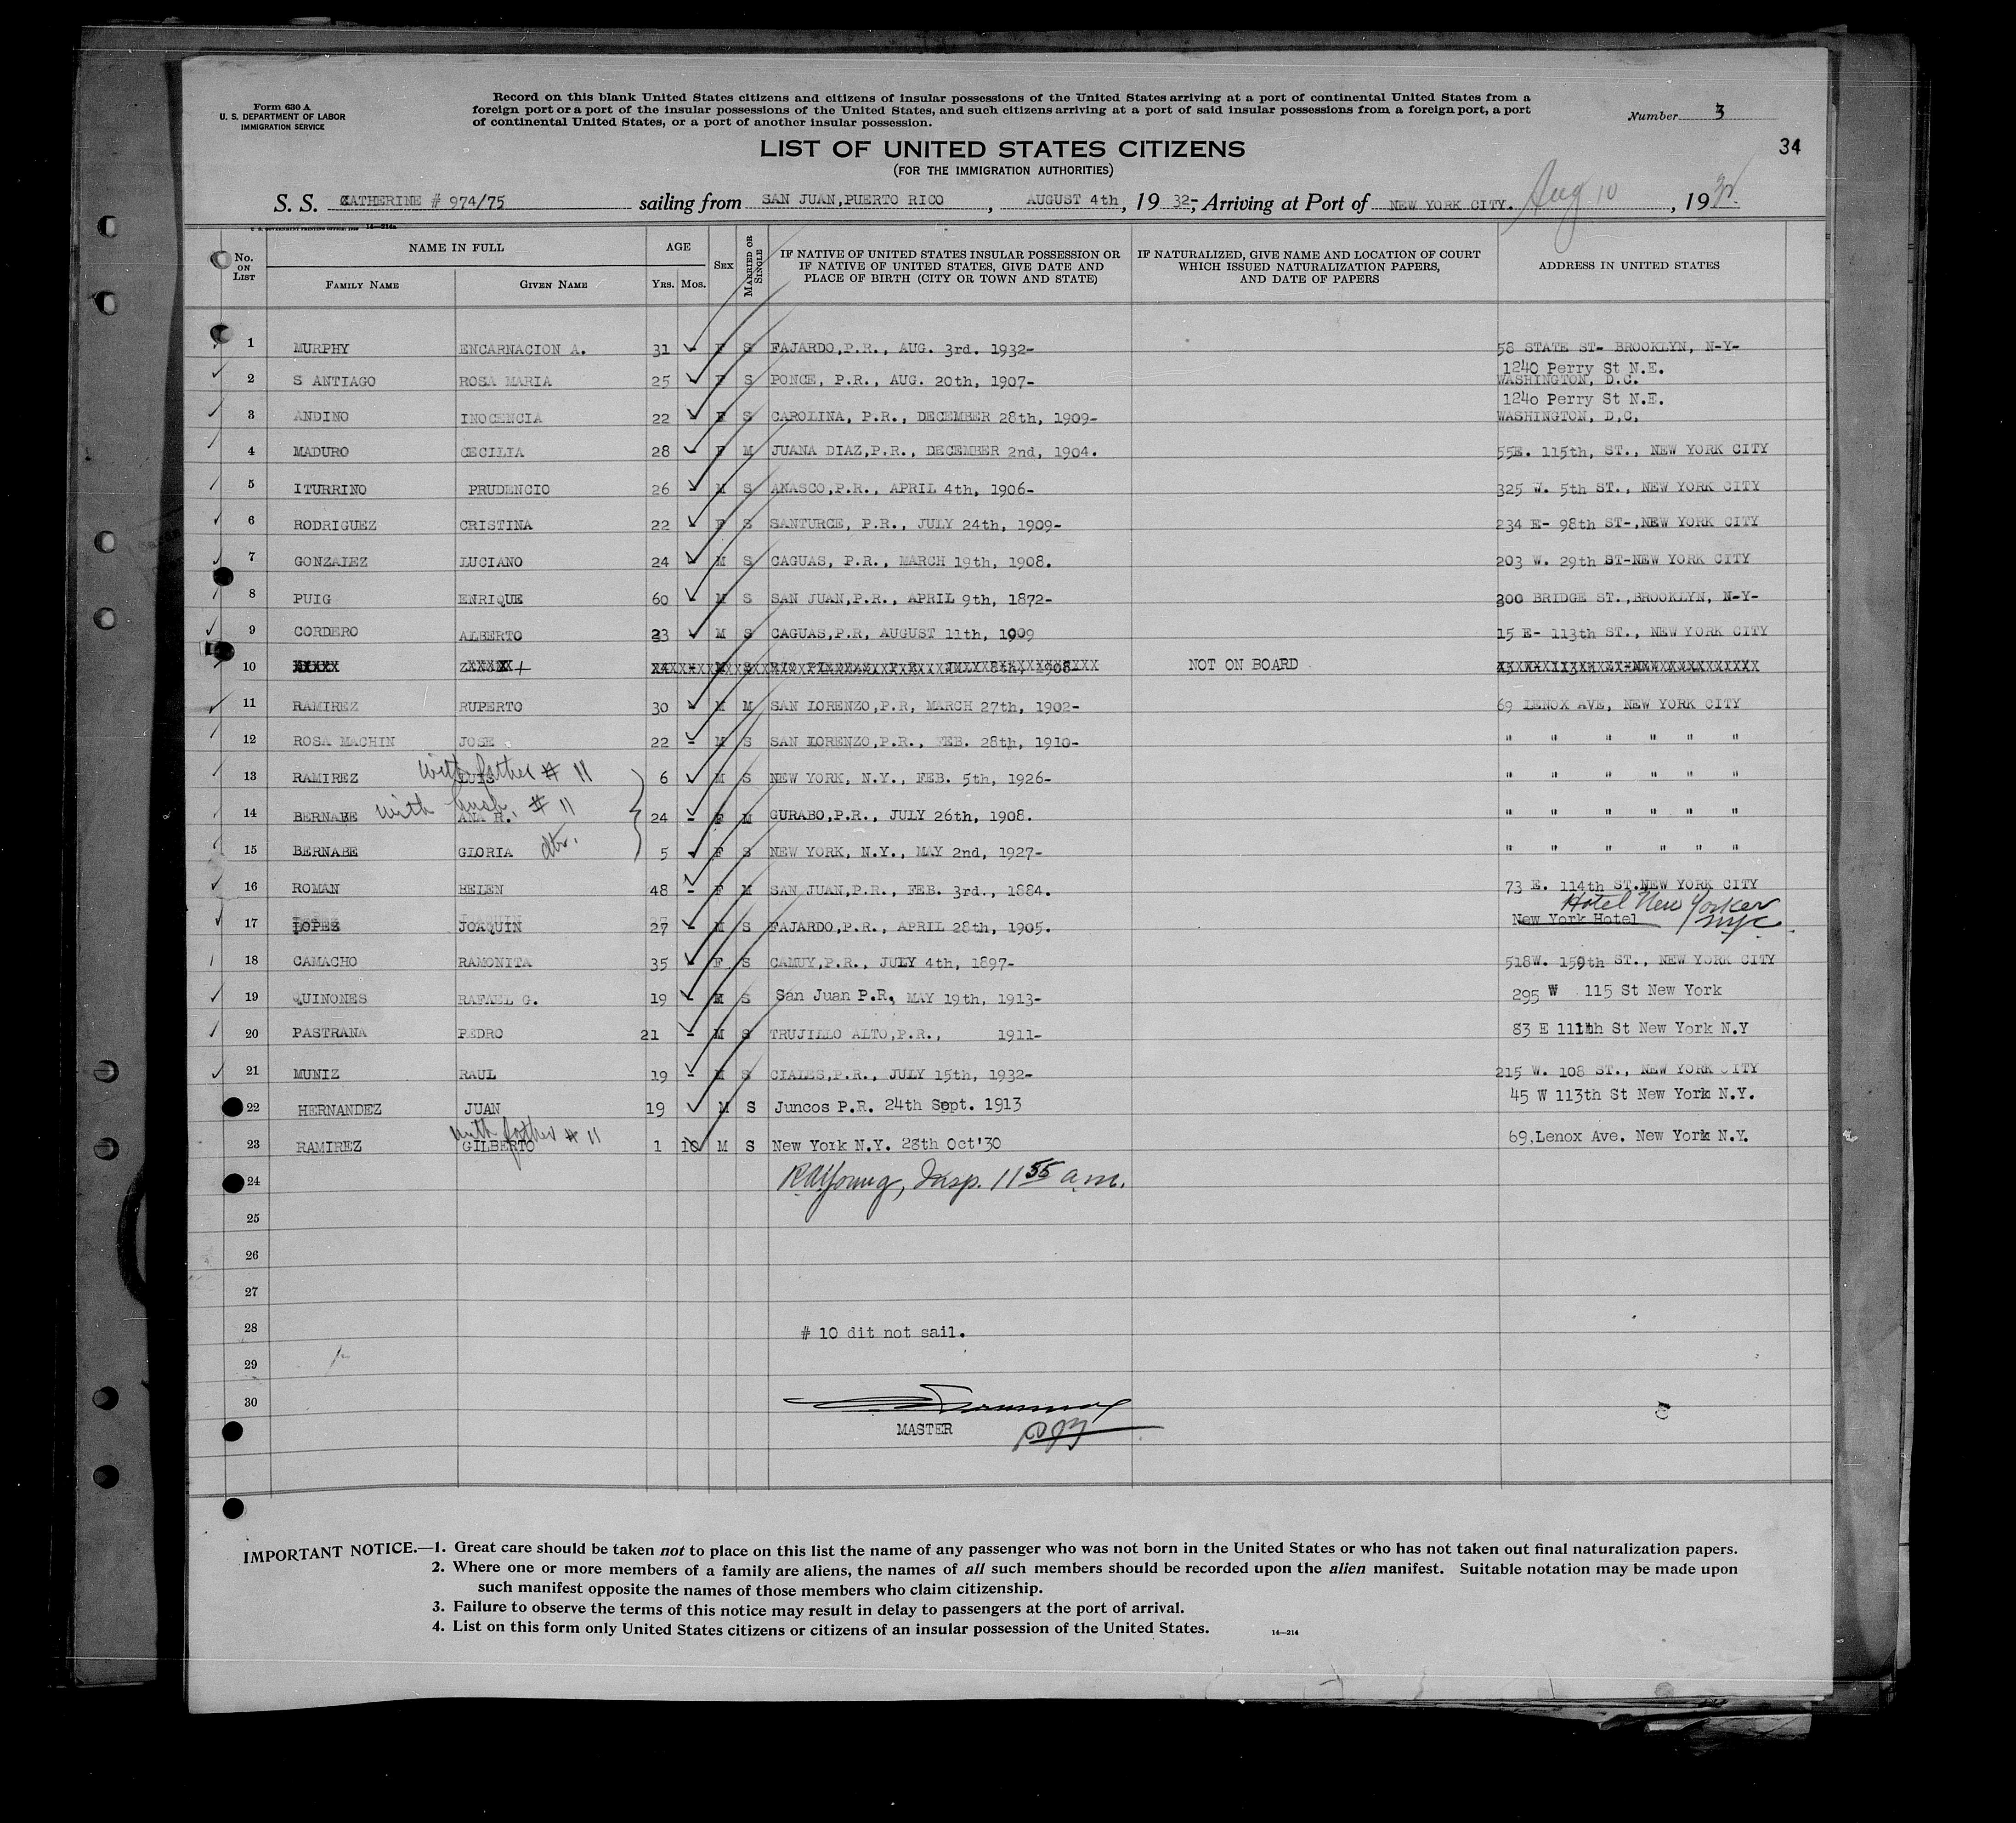 Form 630 A
U. S. DEPARTMENT OF LABOR
IMMIGRATION SERVICE
Record on this blank United States citizens and citizens of insular possessions of the United States arriving at a port of continental United States from a
foreign port or a port of the insular possessions of the United States, and such citizens arriving at a port of said insular possessions from a foreign port, a port
of continental United States, or a port of another insular possession.
Number 3
34
LIST OF UNITED STATES CITIZENS
(FOR THE IMMIGRATION AUTHORITIES)
S. S. CATHERINE # 974/75 sailing from SAN JUAN,PUERTO RICO , AUGUST 4th, 19 32-, Arriving at Port of NEW YORK CITY. Aug 10 , 19 32.
14—214a
No. ON LIST NAME IN FULL AGE SEX MARRIED OR SINGLE IF NATIVE OF UNITED STATES INSULAR POSSESSION OR IF NATIVE OF UNITED STATES, GIVE DATE AND PLACE OF BIRTH (CITY OR TOWN AND STATE) IF NATURALIZED, GIVE NAME AND LOCATION OF COURT WHICH ISSUED NATURALIZATION PAPERS, AND DATE OF PAPERS ADDRESS IN UNITED STATES
FAMILY NAME GIVEN NAME YRS. MOS.
1 MURPHY ENCARNACION A. 31 - F S FAJARDO,P.R., AUG. 3rd. 1932- 58 STATE ST- BROOKLYN, N-Y-
2 S ANTIAGO ROSA MARIA 25 - F S PONCE, P.R., AUG. 20th, 1907- 1240 Perry St N.E. WASHINGTON, D.C.
3 ANDINO INOCENCIA 22 - F S CAROLINA, P.R., DECEMBER 28th, 1909- 1240 Perry St N.E. WASHINGTON, D,C,
4 MADURO CECILIA 28 - F M JUANA DIAZ,P.R., DECEMBER 2nd, 1904. 55E. 115th, ST., NEW YORK CITY
5 ITURRINO PRUDENCIO 26 - M S ANASCO,P.R., APRIL 4th, 1906- 325 W. 5th ST., NEW YORK CITY
6 RODRIGUEZ CRISTINA 22 - F S SANTURCE, P.R., JULY 24th, 1909- 234 E- 98th ST-,NEW YORK CITY
7 GONZALEZ LUCIANO 24 - M S CAGUAS, P.R., MARCH 19th, 1908. 203 W. 29th ST-NEW YORK CITY
8 PUIG ENRIQUE 60 - M S SAN JUAN,P.R., APRIL 9th, 1872- 300 BRIDGE ST.,BROOKLYN, N-Y-
9 CORDERO ALBERTO 23 M S CAGUAS,P.R, AUGUST 11th, 1909 15 E- 113th ST., NEW YORK CITY
10 NOT ON BOARD
11 RAMIREZ RUPERTO 30 - M M SAN LORENZO,P.R, MARCH 27th, 1902- 69 LENOX AVE, NEW YORK CITY
12 ROSA MACHIN JOSE 22 - M S SAN LORENZO,P.R., FEB. 28th, 1910- " " " " " "
13 RAMIREZ LUIS with father # 11 6 M S NEW YORK, N.Y., FEB. 5th, 1926- " " " " " "
14 BERNABE with husb. # 11 ANA R. 24 - F M GURABO,P.R., JULY 26th, 1908. " " " " " "
15 BERNABE GLORIA dtr. 5 - F S NEW YORK, N.Y., MAY 2nd, 1927- " " " " " "
16 ROMAN HELEN 48 - F M SAN JUAN,P.R., FEB. 3rd., 1884. 73 E. 114th ST.NEW YORK CITY
17 LOPEZ JOAQUIN 27 - M S FAJARDO,P.R., APRIL 28th, 1905. New York Hotel Hotel New Yorker NYC.
18 CAMACHO RAMONITA 35 - F S CAMUY,P.R., JULY 4th, 1897- 518W. 159th ST., NEW YORK CITY
19 QUINONES RAFAEL G. 19 - M S San Juan P.R, MAY 19th, 1913- 295 W 115 St New York
20 PASTRANA PEDRO 21 - M S TRUJILLO ALTO,P.R., 1911- 83 E 111th St New York N.Y
21 MUNIZ RAUL 19 - M S CIALES,P.R., JULY 15th, 1932- 215 W. 108 ST., NEW YORK CITY
22 HERNANDEZ JUAN 19 M S Juncos P.R. 24th Sept. 1913 45 W 113th St New York N.Y.
23 RAMIREZ with father # 11 GILBERTO 1 10 M S New York N.Y. 28th Oct'30 69,Lenox Ave. New York N.Y.
24 R.A.Young, Insp. 11 55 a.m.
25
26
27
28 # 10 dit not sail.
29
30
MASTER
IMPORTANT NOTICE.—1. Great care should be taken not to place on this list the name of any passenger who was not born in the United States or who has not taken out final naturalization papers.
2. Where one or more members of a family are aliens, the names of all such members should be recorded upon the alien manifest. Suitable notation may be made upon
such manifest opposite the names of those members who claim citizenship.
3. Failure to observe the terms of this notice may result in delay to passengers at the port of arrival.
4. List on this form only United States citizens or citizens of an insular possession of the United States. 14—214